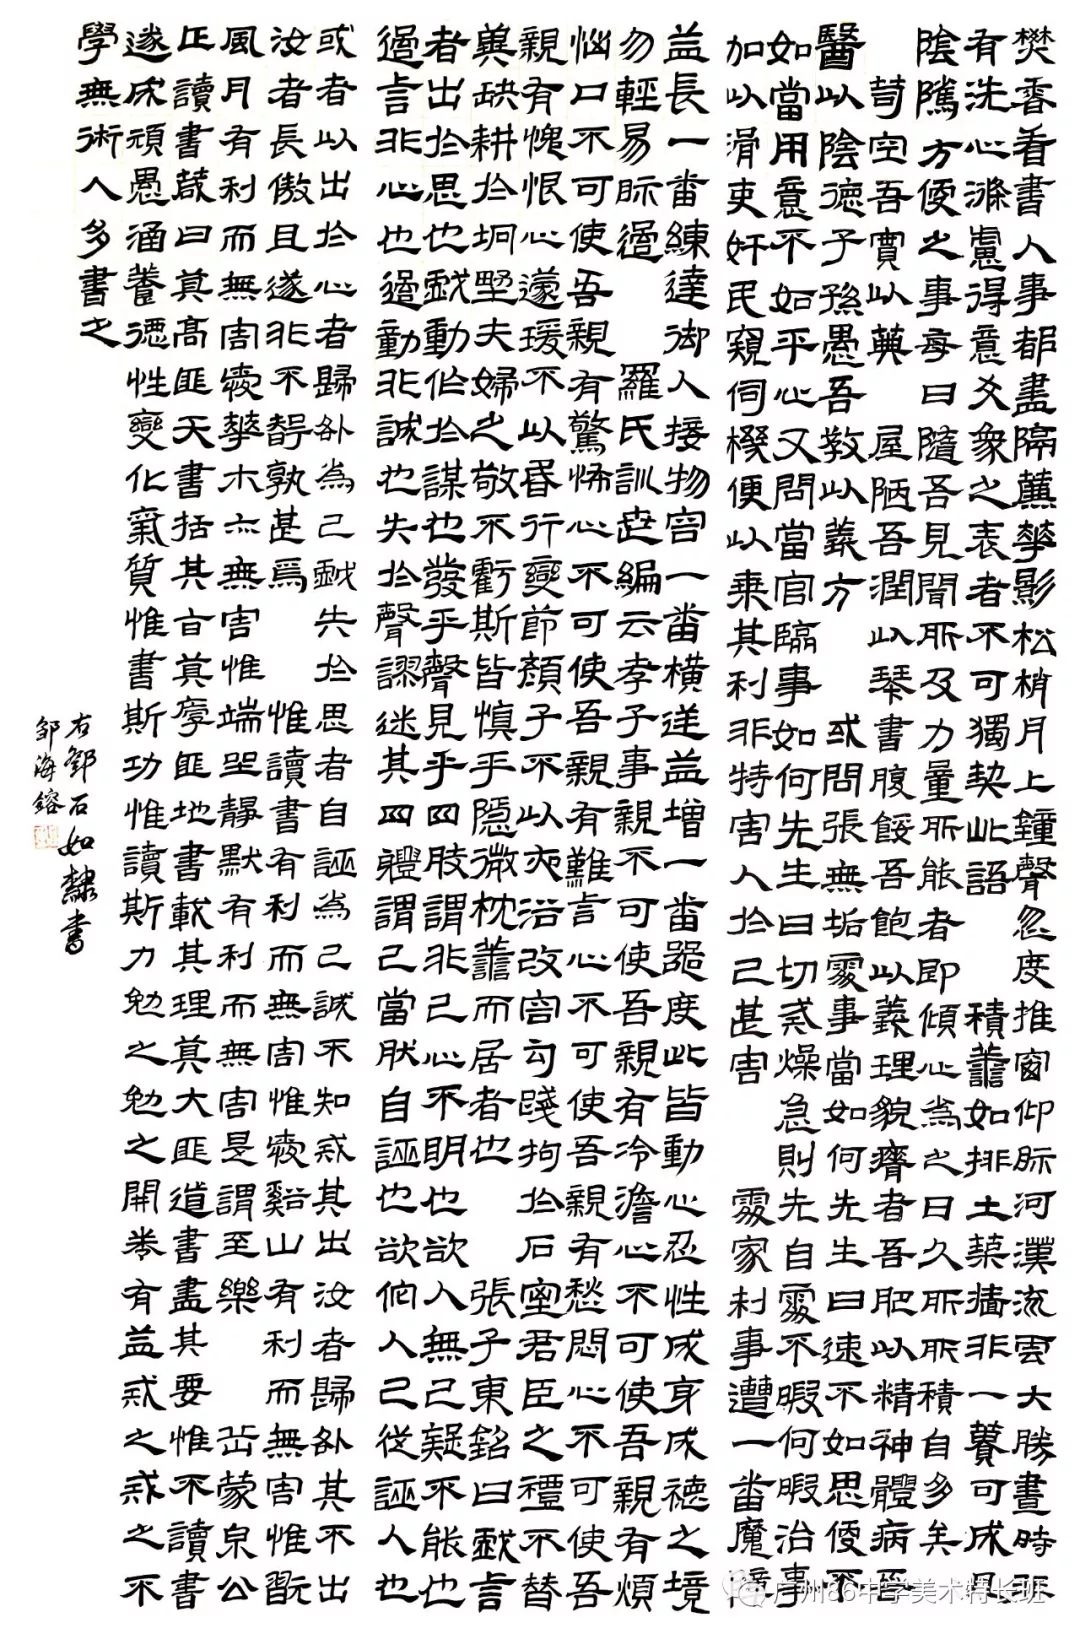 樊香看書人事都盡隔簾華影松梢月上鐘聲忽度推窗仰眎河漢流雲大勝晝時非
有洗心滌慮得意爻象之表者不可獨契此語 積善如排土築牆非一簣可成凡
陰隲方便之事每日隨吾見聞所及力量所能者即傾心為之日久所所積自多矣
苟空吾實以典 屋陋吾潤以琴書腹餒吾飽以義理貌瘠者吾肥以精神體病吾
醫以陰德子孫愚吾教以義方 或問張無垢處事當如何先生曰速不如思便不
如當用意不如平心又問當官臨事如何先生曰切戒燥急則先自處不暇何暇治事
加以滑吏奸民窺伺機便以乘其利非特害人於己甚害 處家利事遭一番魔障
益長一番練達御人接物容一番橫逆益增一番器度此皆動心忍性成身成德之境
勿輕易眎過 羅氏訓世編云孝子事親不可使吾親有冷澹心不可使吾親有煩
惱口不可使吾親有驚怖心不可使吾親有難言心不可使吾親有愁悶心不可使吾
親有愧恨心 蘧瑗不以昏行變節顏子不以夜浴改容勾踐拘於石室君臣之禮不替
冀缺耕於坰野夫婦之敬不虧斯皆慎乎隱微枕善而居者也 張子東銘曰戲言
者出於思也戲動作於謀也發乎聲見乎四肢謂非己心不明也欲人無己疑不能也
過言非心也過動非誠也失於聲謬迷其四體謂己當肰自誣也欲佗人己從誣人也
或者以出於心者歸咎為己戲失於思者自誣為己誠不知戒其出汝者歸咎其不出
汝者長傲且遂非不智孰甚焉 惟讀書有利而無害惟愛谿山有利而無害惟翫
風月有利而無害愛華木亦無害惟端坐靜默有利而無害是謂至樂 岳蒙泉公
正讀書箴曰其高匪天書括其旨其厚匪地書載其理其大匪道書盡其要惟不讀書
遂成頑愚涵養德性變化氣質惟書斯功惟讀斯力勉之勉之開卷有益戒之戒之不
學無術人多書之
右鄧石如隸書
邹海鎔
广州86中学美术特长班